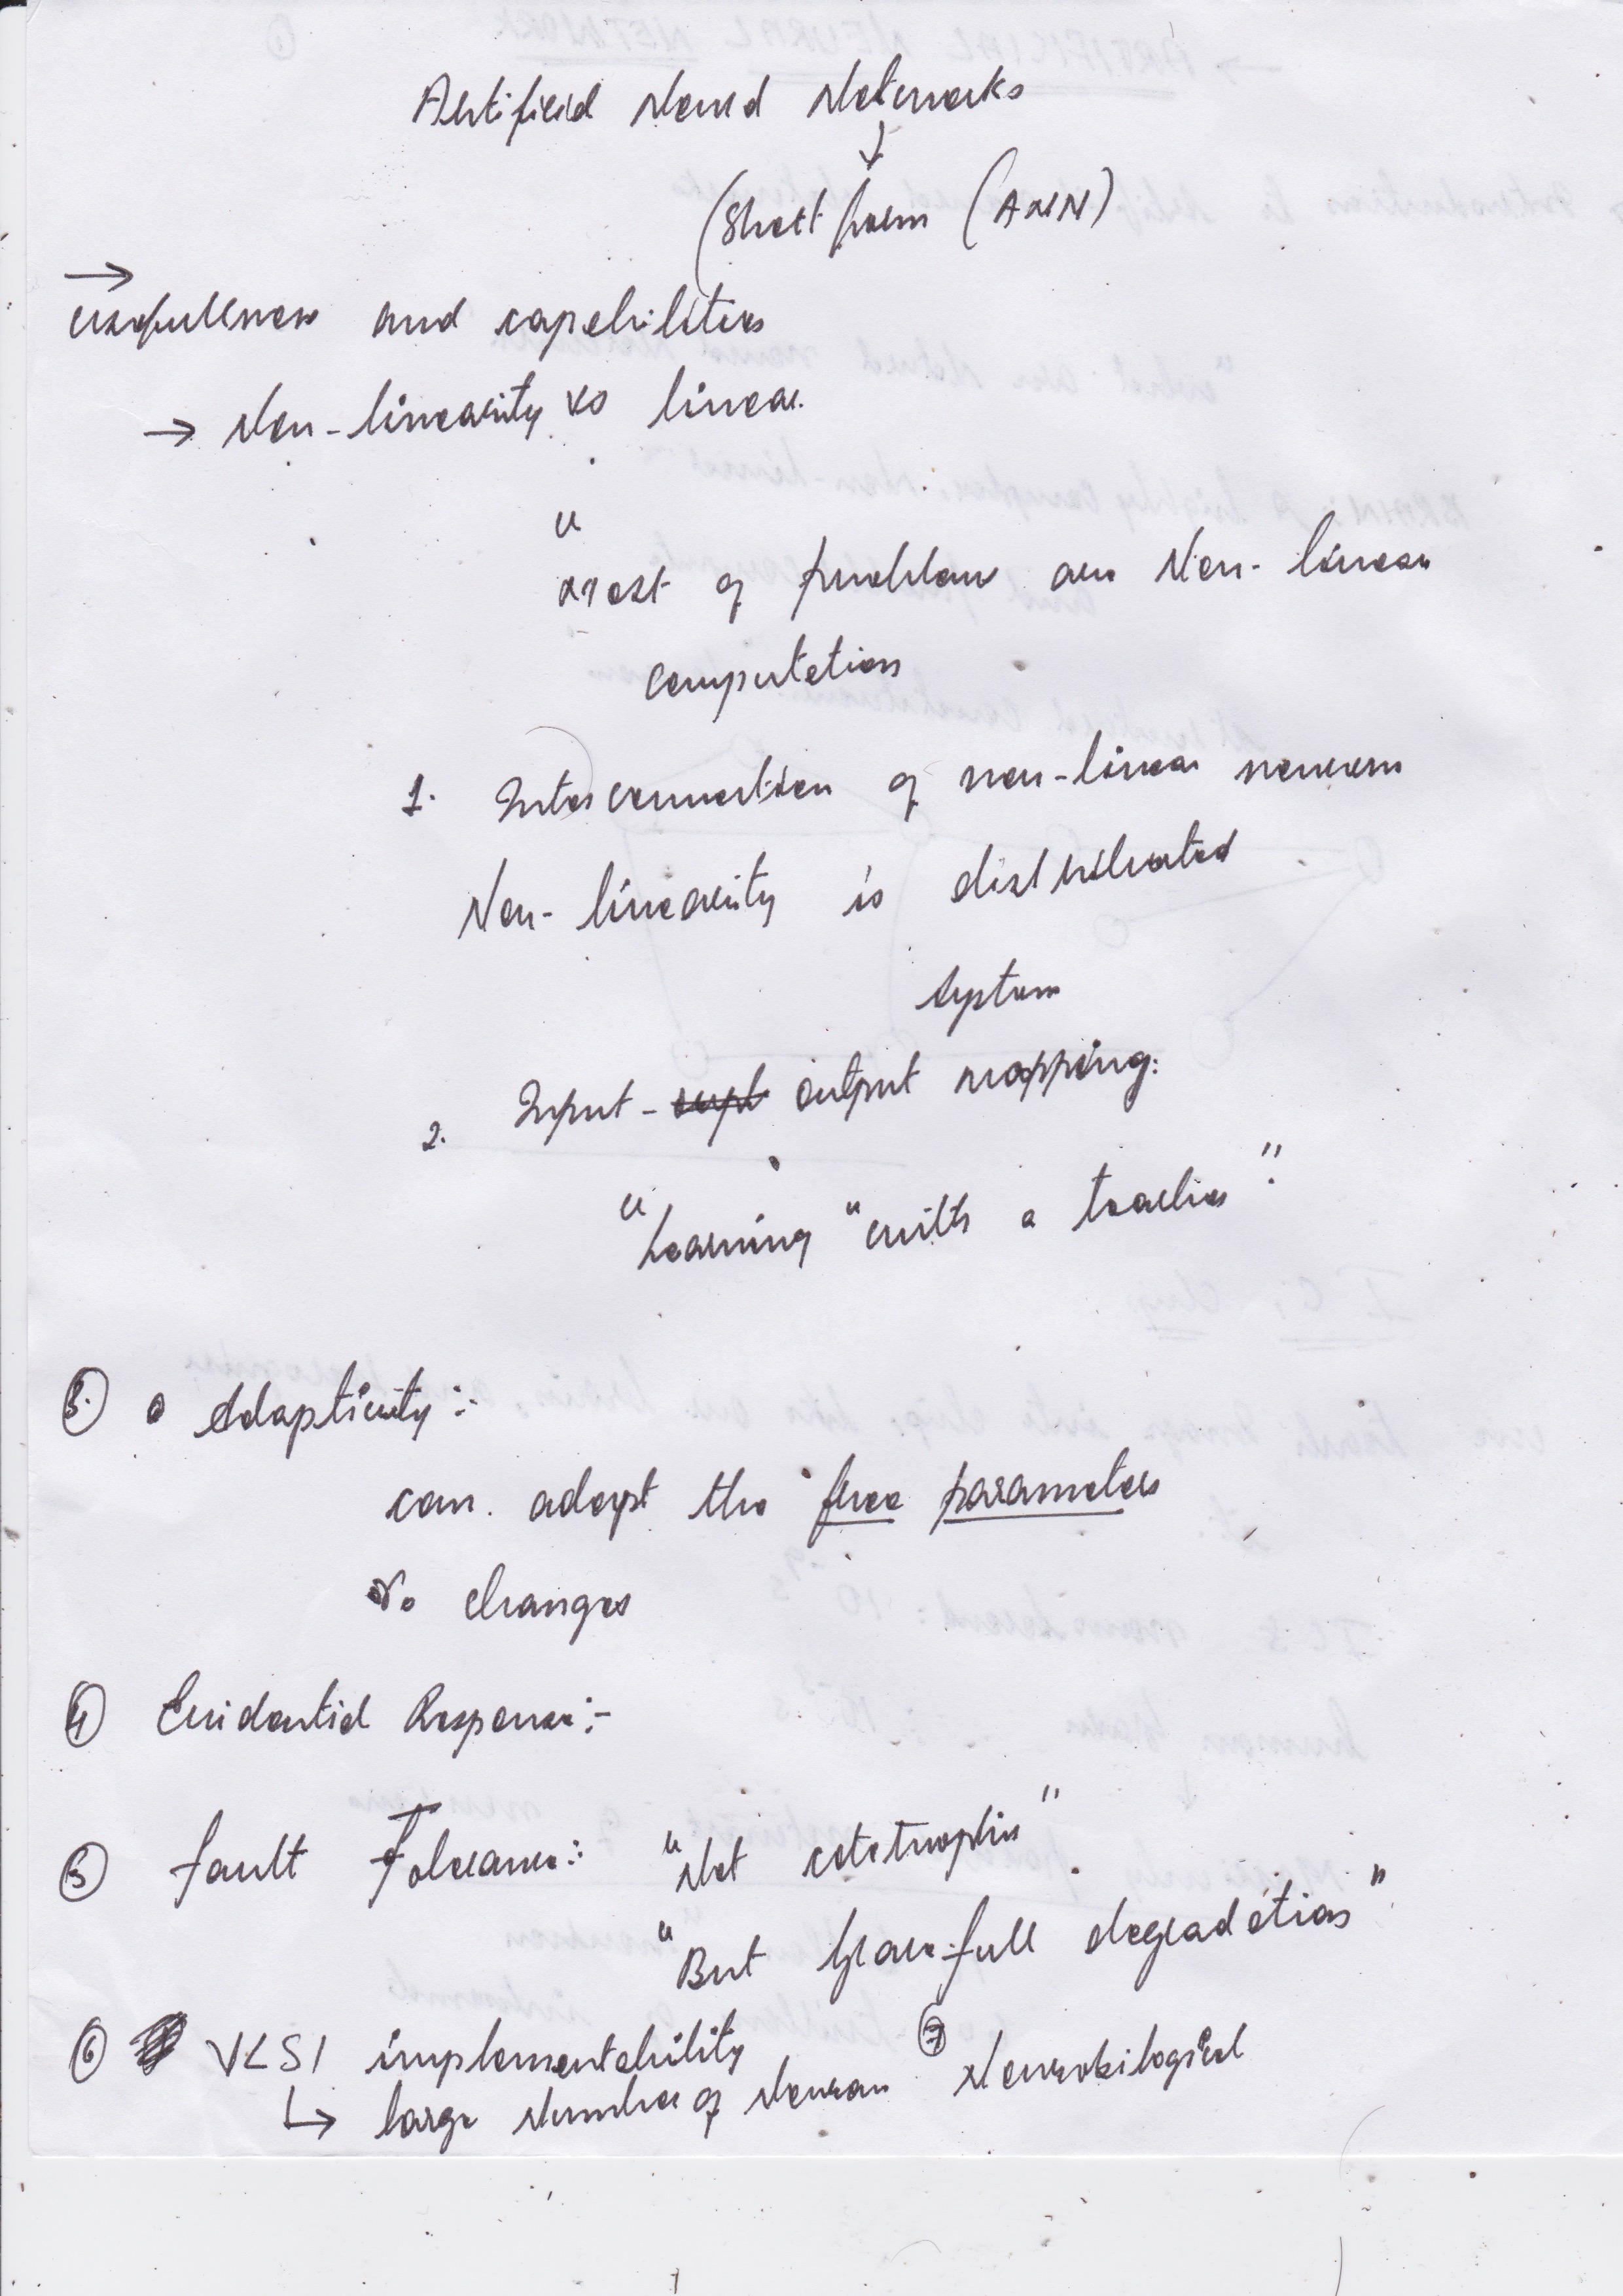 Artificial Neural Networks
↓
(Short form (ANN)
→
usefullness and capebilities
→ Non-linearity vs linear.
"
most of problem are Non-linear
computation
1. Interconnection of non-linear neuron
Non-linearity is distributed
system
2. Input- output mapping:
"Learning "with a teacher".
3. Adaptivity:-
can. adopt the free parameters
To changes
4 Evidential Response:-
5 fault Tolerance:- "Not catatrophic"
"But Gracefull degradation"
6 VLSI implementebility
↳ large Number of Neuron
7 Neurobilogical